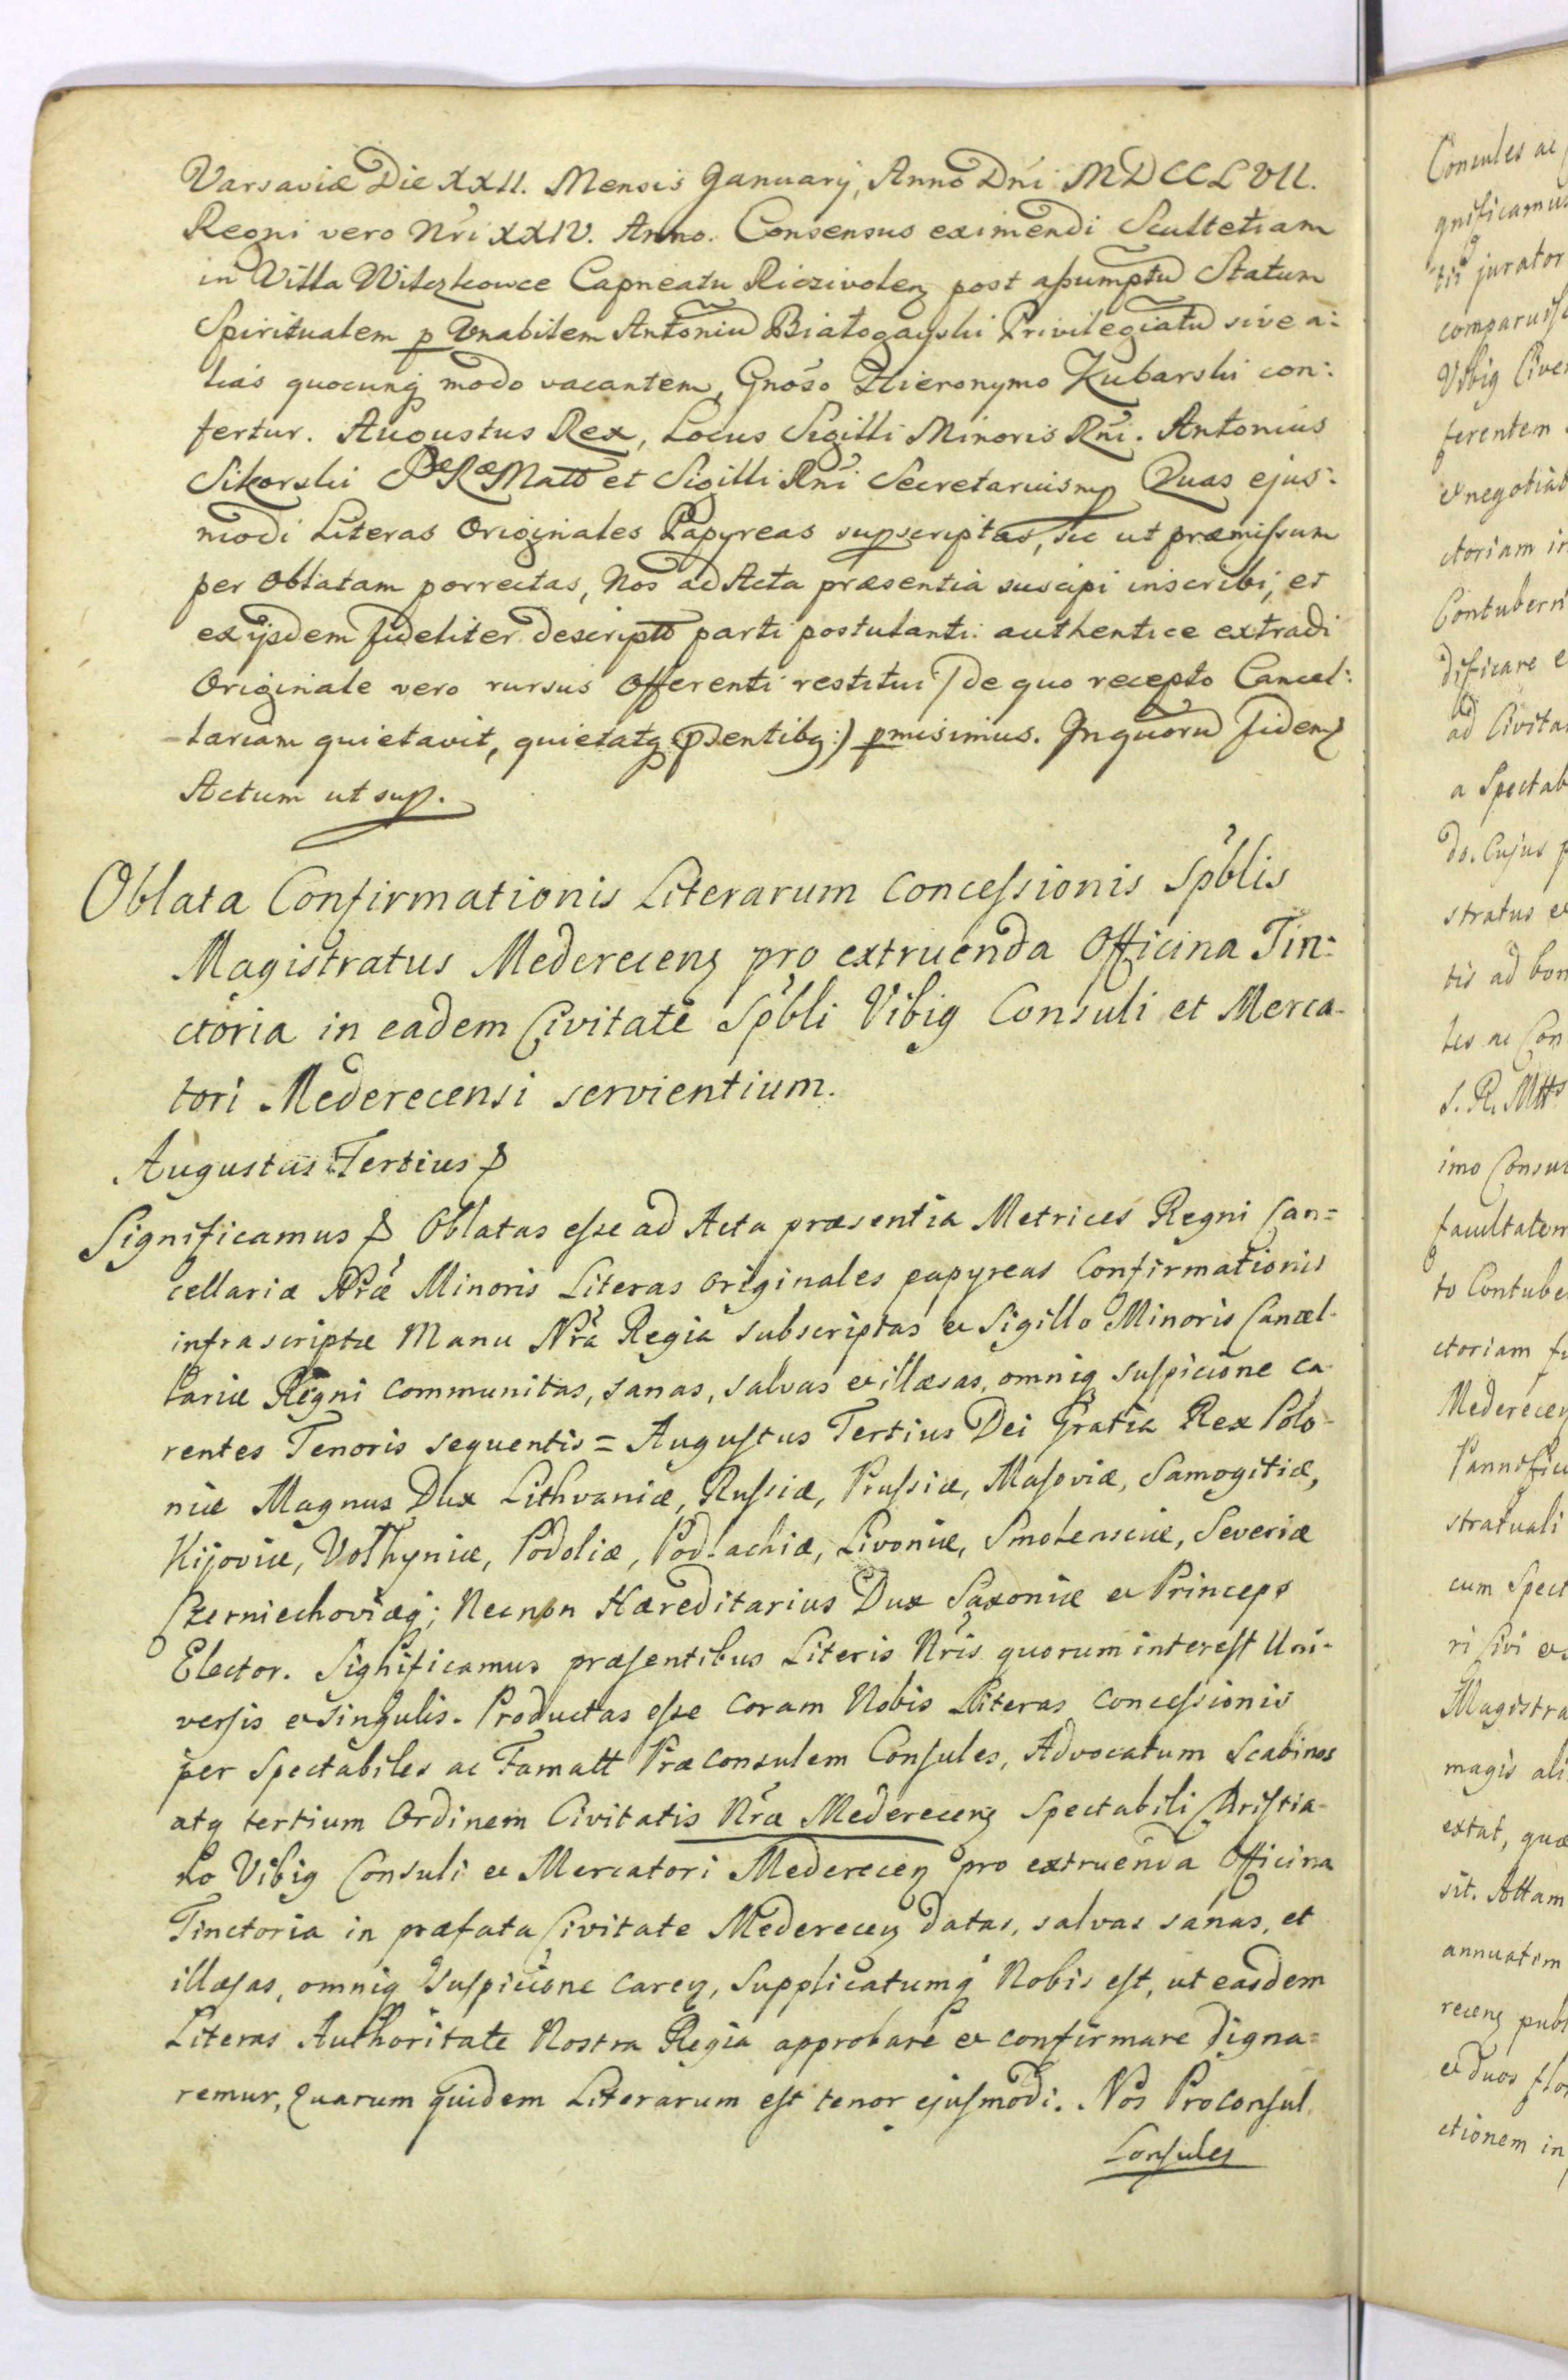 Varsaviæ Die XXII. Mensis Januarÿ, Anno Dni MDCCLVII.
Regni vero Nri XXIV. Anno. Consensus eximendi Scultetiam
in Villa Wilczkowce Capneatu Riczivoleƶ post aſsumptũ Statum
Spiritualem p Vnabilem Antoniũ Białogayski Privilegiatũ sive a:
lias quocunq modo vacantem, Gnoso Hieronymo Kubarski con:
fertur. Augustus Rex, Locus Sigilli Minoris Rni. Antonius
Sikorski SæRæMatt et Sigilli Rni Secretariusmp Quas ejus:
modi Literas Originales Papyreas supscriptas, sic ut præmiſsum
per Oblatam porrectas, Nos ad Acta præsentia suscipi inscribi, et
ex ijsdem fideliter descriptt parti postulanti authentice extradi
Originale vero rursus Offerenti restitui /de quo recepto Cancel:
lariam quietavit, quietatq psentibq:) pmisimus. In quorũ fidem
Actum ut sup.
Oblata Confirmationis Literarum Conceſsionis Spblis
Magistratus Mederecenƶ pro extruenda Officina Tin:
ctoria in eadem Civitate Spbli Vibig Consuli et Merca-
tori Mederecensi servientium.
Augustus Tertius ꝭ
Significamus ꝭ Oblatas eſse ad Acta præsentia Metrices Regni Can=
cellariæ Nræ Minoris Literas Originales papyreas Confirmationis
infrascriptæ Manu Nra Regia subscriptas et Sigillo Minoris Cancel-
lariæ Regni communitas, sanas, salvas et illæsas, omniq suſpicione ca
rentes Tenoris sequentis = Auguſtus Tertius Dei Gratia Rex Polo-
niæ Magnus Dux Lithvaniæ, Ruſsiæ, Pruſsiæ, Maſoviæ, Samogitiæ,
Kijoviæ, Volhyniæ, Podoliæ, Podlachiæ, Livoniæ, Smolensciæ, Severiæ
Czerniechoviæq; Necnon Hæreditarius Dux Saxoniæ et Princeps
Elector. Significamus præſentibus Literis Nris quorum intereſt Uni-
verſis et Singulis. Productas eſse Coram Nobis Literas Conceſsionis
per Spectabiles ac Famatt Præconsulem Conſules, Advocatum Scabinos
atq tertium Ordinem Civitatis Nræ Mederecenƶ Spectabili Chriſtia-
no Vibig Consuli et Mercatori Medereceƶ pro extruenda Officina
Tinctoria in præfata Civitate Medereceƶ datas, salvas sanas, et
illæſas, omniq Suſpicione Careƶ, Supplicatumq Nobis eſt, ut easdem
Literas Authoritate Nostra Regia approbare et confirmare digna=
remur, Quarum quidem Literarum eſt tenor ejuſmodi. Nos Proconſul
Conſules